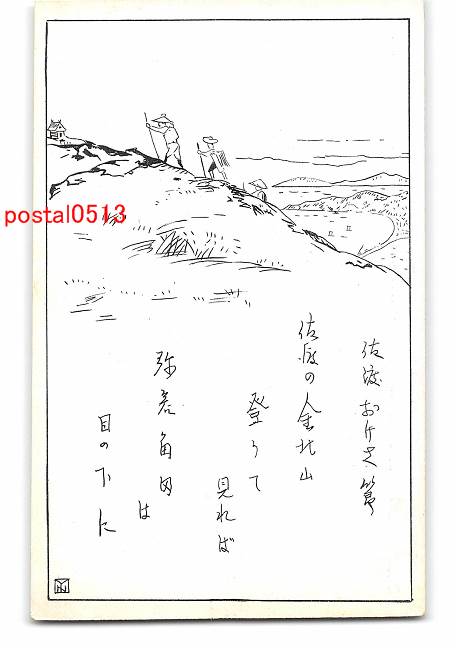 佐渡おけさ節
佐渡の金北山
登つて
見れば
弥彦角田
は
目の下に
postal0513